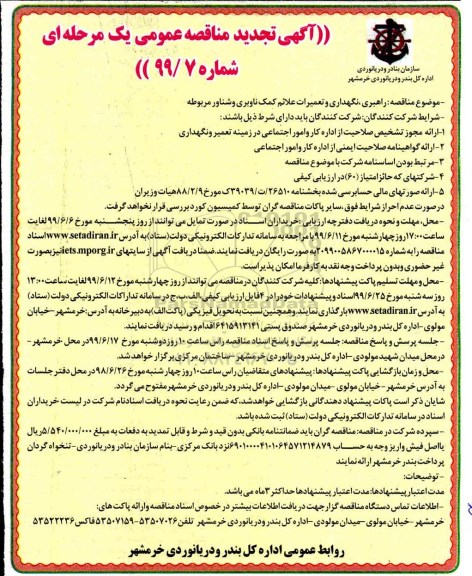 ((آگهی تجدید مناقصه عمومی یک مرحله ای
شماره ۹۹/۷ ))
سازمان بنادر و دریانوردی
اداره کل بندر و دریانوردی خرمشهر
-موضوع مناقصه: راهبری ،نگهداری و تعمیرات علائم کمک ناوبری و شناور مربوطه
-شرایط شرکت کنندگان: شرکت کنندگان باید دارای شرط ذیل باشند:
۱-ارائه مجوز تشخیص صلاحیت از اداره کار و امور اجتماعی در زمینه تعمیر و نگهداری
۲-ارائه گواهینامه صلاحیت ایمنی از اداره کار و امور اجتماعی
۳-مرتبط بودن اساسنامه شرکت با موضوع مناقصه
۴-شرکتهای که حائز امتیاز (۶۰)در ارزیابی کیفی
۵-ارائه صورتهای مالی حسابرسی شده بخشنامه ۲۶۵۱۰/ت/۳۹۰۳۹ک مورخ ۸۸/۲/۹هیات وزیران
در صورت عدم احراز شرایط فوق، سایر پاکات مناقصه گران توسط کمیسیون کورد بررسی قرار نخواهد گرفت.
-محل، مهلت و نحوه دریافت دفترچه ارزیابی: خریداران اسناد در صورت تمایل می توانند از روز پنجشنبه مورخ ۹۹/۶/۶ لغایت
ساعت ۱۷:۰۰روز چهارشنبه مورخ ۹۹/۶/۱۱ با مراجعه به سامانه تدارکات الکترونیکی دولت(ستاد)به آدرس www.setadiran.ir اسناد
مناقصه را به شماره ۲۰۹۹۰۰۵۸۶۷۰۰۰۰۱۵به صورت رایگان دریافت نمایند.ضمنا دریافت آگهی از سایتهای iets.mporg.irنیز بصورت
غیر حضوری وبدون پرداخت وجه نقد به کارفرما امکان پذیر است.
-محل و مهلت تسلیم پاکت پیشنهادها: کلیه شرکت کنندگان در مناقصه می توانند از روز چهارشنبه مورخ ۹۹/۶/۱۲لغایت ساعت ۱۳:۰۰
روز سه شنبه مورخ ۹۹/۶/۲۵اسناد و پیشنهادات خود را در ۴فایل ارزیابی کیفی،الف،ب،ج در سامانه تدارکات الکترونیکی دولت (ستاد)
به آدرس www.setadiran.irبارگذاری نمایند.وهمچنین نسبت به تحویل فیزیکی (پاکت الف)به دبیرخانه به آدرس: خرمشهر-خیابان
مولوی-اداره کل بندر و دریانوردی خرمشهر صندوق پستی ۶۴۱۵۹۱۳۱۴۱اقدام و رسید دریافت نمایند.
- جلسه پرسش و پاسخ مناقصه: جلسه پرسش و پاسخ اسناد مناقصه راس ساعت ۱۰روز دوشنبه مورخ ۹۹/۶/۱۷ در محل خرمشهر-
در محل میدان شهید مولودی-اداره کل بندر و دریانوردی خرمشهر-ساختمان مرکزی برگزار خواهد شد.
-محل و زمان بازگشایی پاکت پیشنهادها: پیشنهادهای متقاضیان راس ساعت ۱۰روز چهارشنبه مورخ ۹۸/۶/۲۶در محل دفتر جلسات
به آدرس خرمشهر-خیابان مولوی -میدان مولوی-اداره کل بندر و دریانوردی خرمشهر مفتوح می گردد.
شایان ذکر است پاکات پیشنهاد دهندگانی بازگشایی خواهد شد،که ضمن رعایت نحوه دریافت اسناد نام شرکت در لیست خریداران
اسناد در سامانه تدارکات الکترونیکی دولت (ستاد) ثبت شده باشد.
-سپرده شرکت در مناقصه: مناقصه گران باید ضمانتنامه بانکی بدون قید و شرط و قابل تمدید به دفعات به مبلغ ۵/۵۴۰/۰۰۰/۰۰۰ریال
یا اصل فیش واریز وجه به حساب ۶۹۰۱۰۰۰۰۴۱۰۱۰۶۴۵۷۱۲۱۴۸۷۹نزد بانک مرکزی-بنام سازمان بنادر و دریانوردی-تنخواه گردان
پرداخت بندر خرمشهر ارائه نمایند
-توضیحات:
مدت اعتبار پیشنهادها:مدت اعتبار پیشنهادها حداکثر ۳ماه می باشد.
-اطلاعات تماس دستگاه مناقصه گزار جهت دریافت اطلاعات بیشتر در خصوص اسناد مناقصه وارائه پاکت های:
خرمشهر-خیابان مولوی-میدان مولودی-اداره کل بندر و دریانوردی خرمشهر تلفن ۵۳۵۰۷۰۲۶-۵۳۵۰۷۱۵۹فاکس ۵۳۵۲۲۲۳۶
روابط عمومی اداره کل بندر و دریانوردی خرمشهر